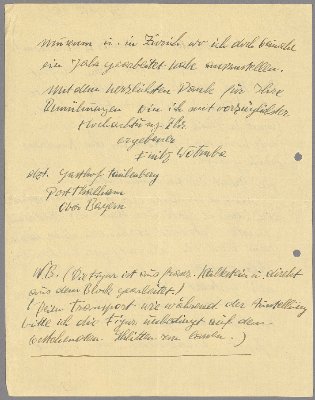 museum u. in Zürich, wo ich doch beinahe
ein Jahr gearbeitet habe auszustellen.
Mit dem herzlichsten Dank für Ihre
Bemühungen bin ich mit vorzüglichster
Hochachtung Ihr
ergebener
Fritz Wotruba
adr. Gasthof
Post
Ober Bayern
N.B. (Die Figur ist aus franz. Kalkstein u. direkt
aus dem Block gearbeitet.)
Beim Transport wie während der Ausstellung
bitte ich die Figur unbedingt auf dem
zu lassen.)